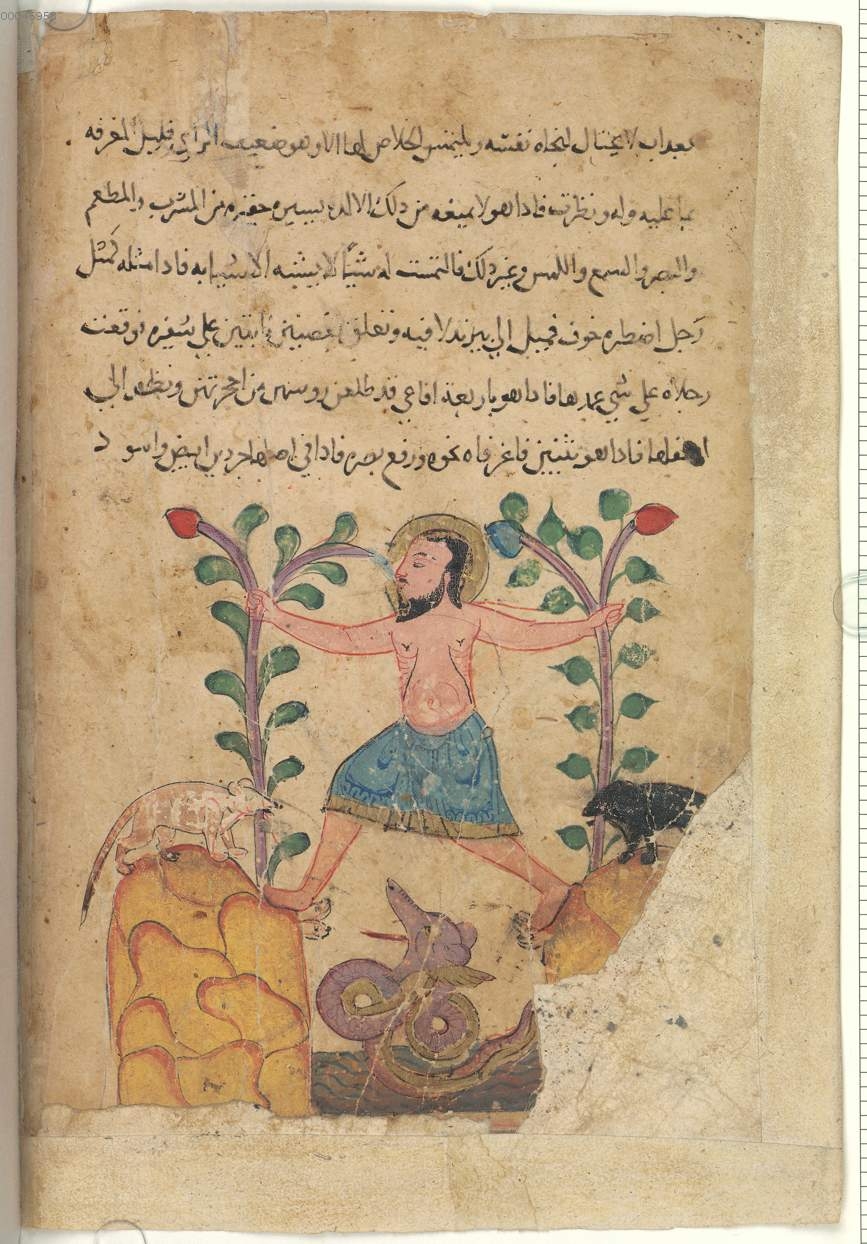 لا يحتال لنجاه نفسه ويلتمس الخلاص لها الا وهو ضعيف الراي قليل المعرفه
بما عليه وله ونظرت فادا هو لا يمنعه من دلك الا لده يسيره حقيره من المشرب والمطعم
والبصر والسمع واللمس وغير دلك فالتمست له شيًا لا يشبه الاشيا به فادا مثله كمثل
رجل اضطره خوف الى بير تدلا فيه وتعلق بغصنين نابتين على شفيره فوقعت
رجلاه على شي عمدها فادا هو باربعة افاعي قد طلعن روسهن من اجحرتهن ونظر الى
اسفلها فادا هو بتنين فاغر فاه نحوه ورفع بصره فادا في اصلهما جردين ابيض واسود